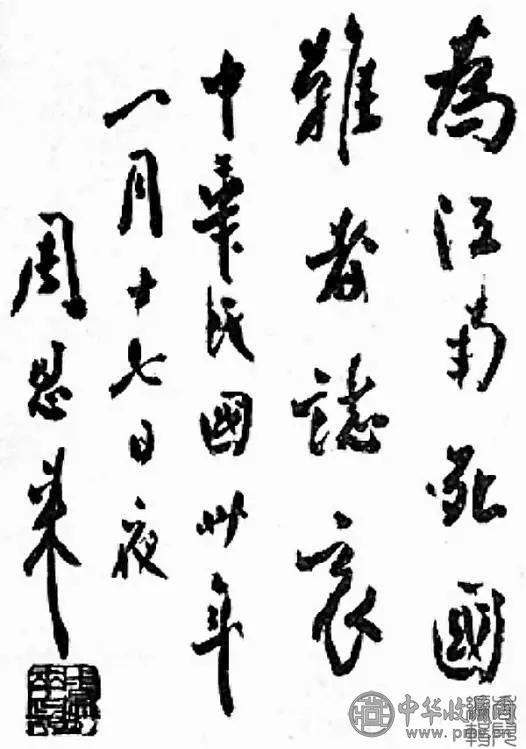 為江南死國
難者誌哀
中華民國卅年
一月十七日夜
周恩来
中华收藏